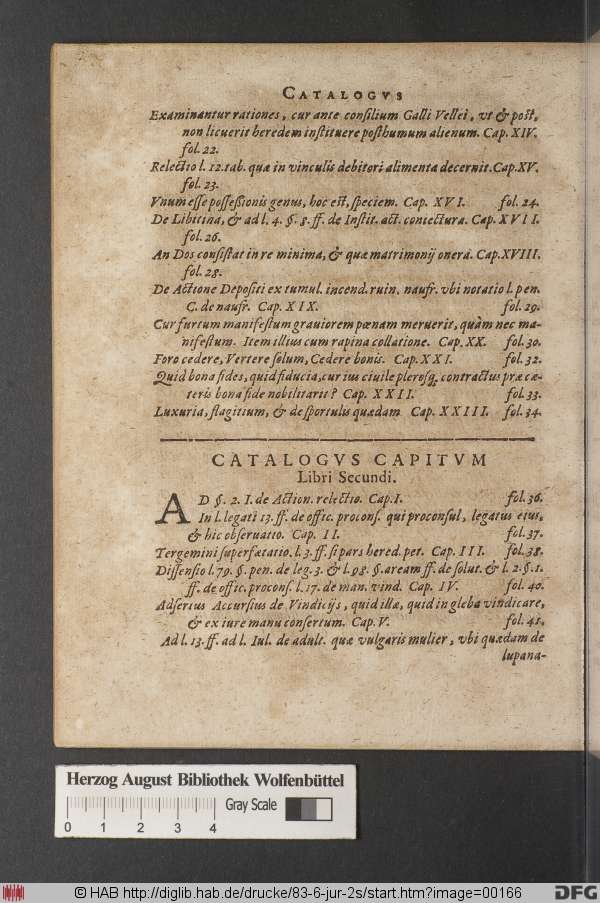 CATALOGVS
Examinantur rationes, cur ante consilium Galli Vellei, vt & post,
non licuerit heredem instituere posthumum alienum. Cap. XIV.
fol. 22.
Relectio l. 12. tab. quæ in vinculis debitori alimenta decernit. Cap. XV.
fol. 23.
Vnum esse possessionis genus, hoc est, speciem. Cap. XVI. fol. 24.
De Libitina, & ad l. 4. §. 8. ff. de Instit. act. coniectura. Cap. XVII.
fol. 26.
An Dos consistat in re minima, & quæ matrimonij onera. Cap. XVIII.
fol. 28.
De Actione Depositi ex tumul. incend. ruin. naufr. vbi notatio l. pen.
C. de naufr. Cap. XIX. fol. 29.
Cur furtum manifestum grauiorem pœnam meruerit, quàm nec ma-
nifestum. Item illius cum rapina collatione. Cap. XX. fol. 30.
Foro cedere, Vertere solum, Cedere bonis. Cap. XXI. fol. 32.
Quid bona fides, quid fiducia, cur ius ciuile plerosq. contractus præ cæ-
teris bona fide nobilitarit? Cap. XXII. fol. 33.
Luxuria, flagitium, & de sportulis quædam Cap. XXIII. fol. 34.
CATALOGVS CAPITVM
Libri Secundi.
AD §. 2. I. de Action. relectio. Cap. I. fol. 36.
In l. legati 13. ff. de offic. procons. qui proconsul, legatus eius,
& hic obseruatio. Cap. II. fol. 37.
Tergemini superfætatio. l. 3. ff. si pars hered. pet. Cap. III. fol. 38.
Dissensio l. 79. §. pen. de leg. 3. & l. 98. §. aream ff. de solut. & l. 2. §. 1.
ff. de offic. procons. l. 17. de man. vind. Cap. IV. fol. 40.
Adsertus Accursius de Vindicijs, quid illæ, quid in gleba vindicare,
& ex iure manu consertum. Cap. V. fol. 41.
Ad l. 13. ff. ad l. Iul. de adult. quæ vulgaris mulier, vbi quædam de
lupana-
Herzog August Bibliothek Wolfenbüttel
Gray Scale
0 1 2 3 4
© HAB http://diglib.hab.de/drucke/83-6-jur-2s/start.htm?image=00166
DFG